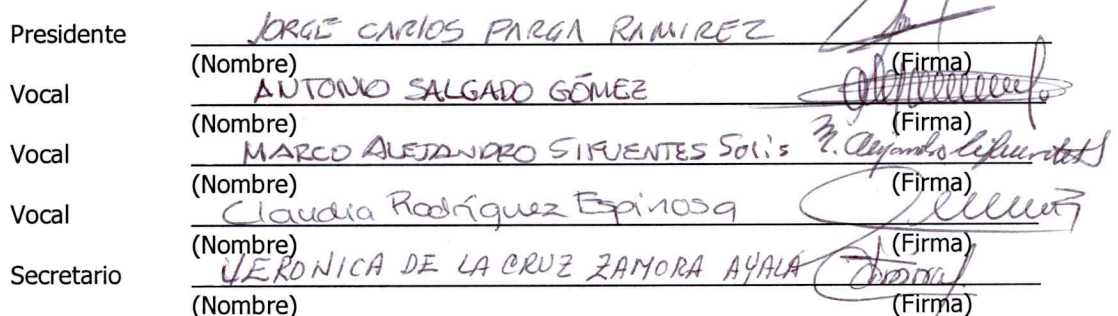 Presidente JORGE CARLOS PARGA RAMIREZ
(Nombre) (Firma)
Vocal ANTONIO SALGADO GÓMEZ
(Nombre) (Firma)
Vocal MARCO ALEJANDRO SIFUENTES SOLIS M. Alejandro Sifuentes S
(Nombre) (Firma)
Vocal Claudia Rodríguez Espinosa
(Nombre) (Firma)
Secretario VERONICA DE LA CRUZ ZAMORA AYALA
(Nombre) (Firma)